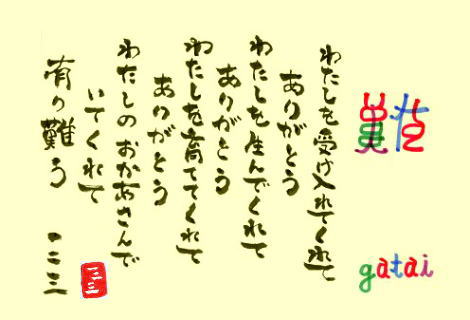 難
gatai
わたしを受け入れてくれて
ありがとう
わたしを生んでくれて
ありがとう
わたしを育ててくれて
ありがとう
わたしのおかあさんで
いてくれて
有り難う
一二三